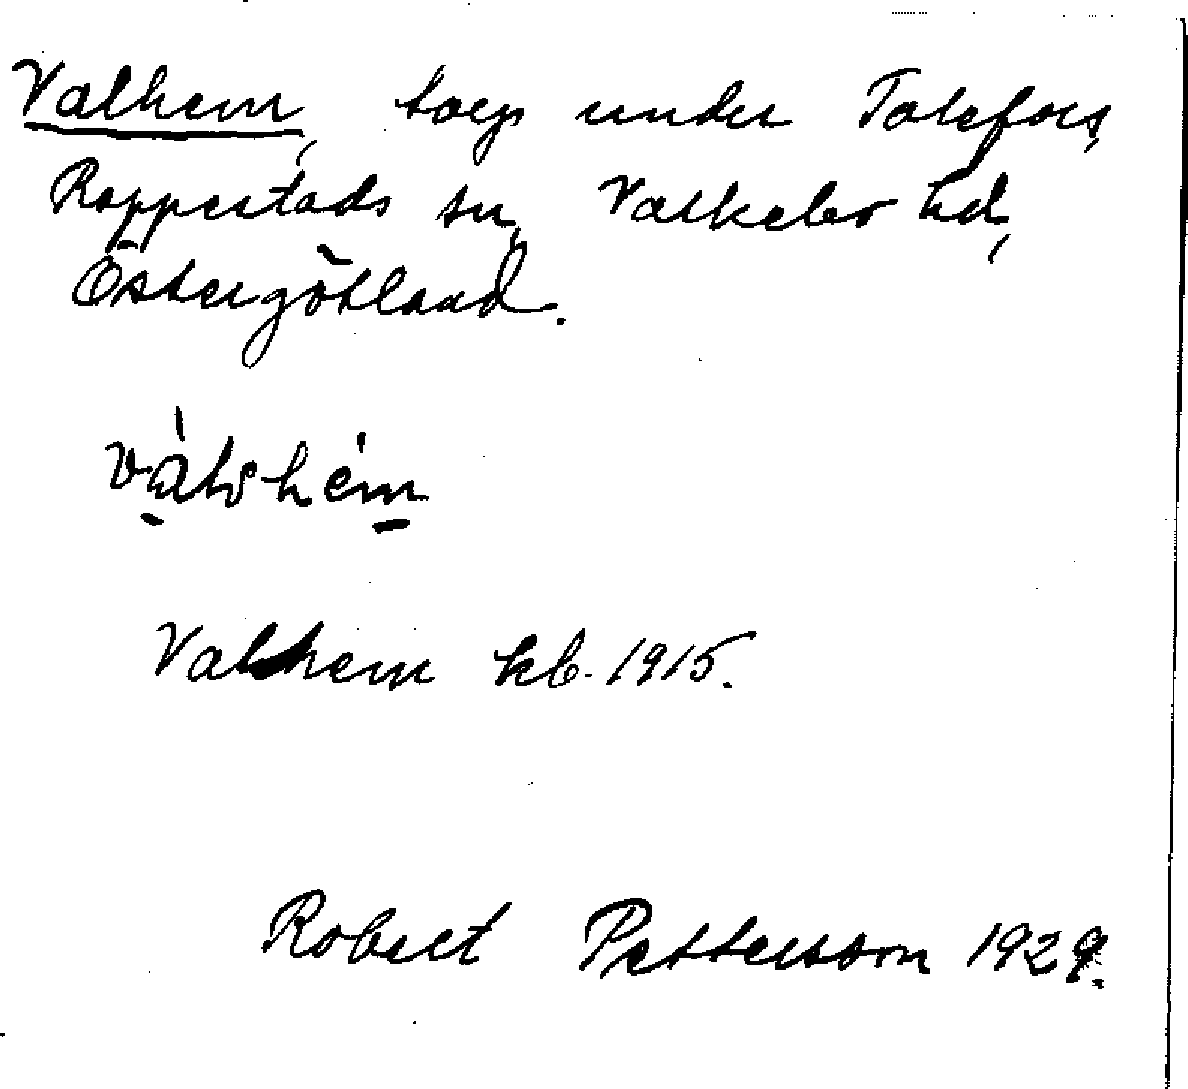 Valhem, torp under Tolefors,
Rappestads sn, Valkebo hd,
Östergötland.
Valhem kb. 1915.
Robert Pettersson 1929.